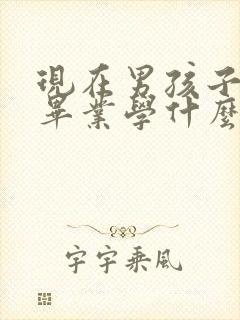 現在男孩子
畢業學什麼
宇宇乘風